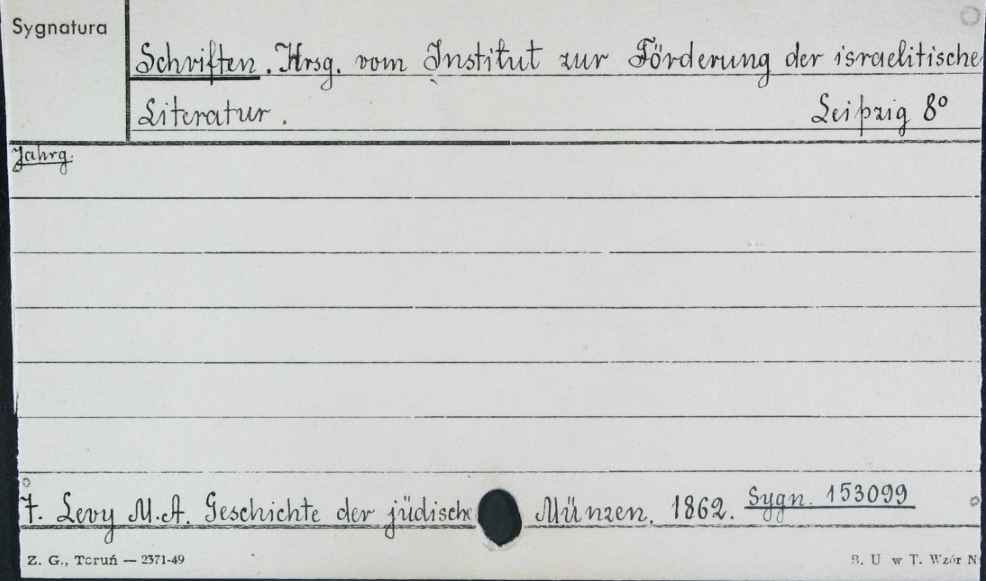 Sygnatura
Schriften. Hrsg. vom Institut zur Förderung der israelitische
Literatur. Leipzig 8°
Jahrg.
7. Levy M.A. Geschichte der jüdische Münzen. 1862. Sygn. 153099
Z. G., Toruń — 2371-49 B. U w T. Wzór N